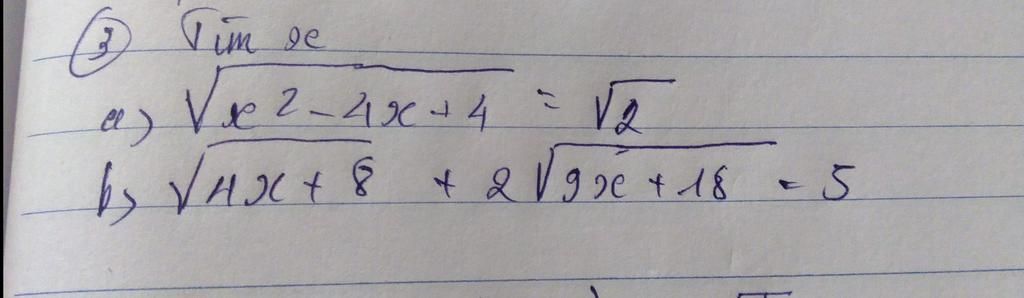 ③ Tìm x
a) √(x² - 4x + 4) = √2
b) √(4x + 8) + 2√(9x + 18) = 5